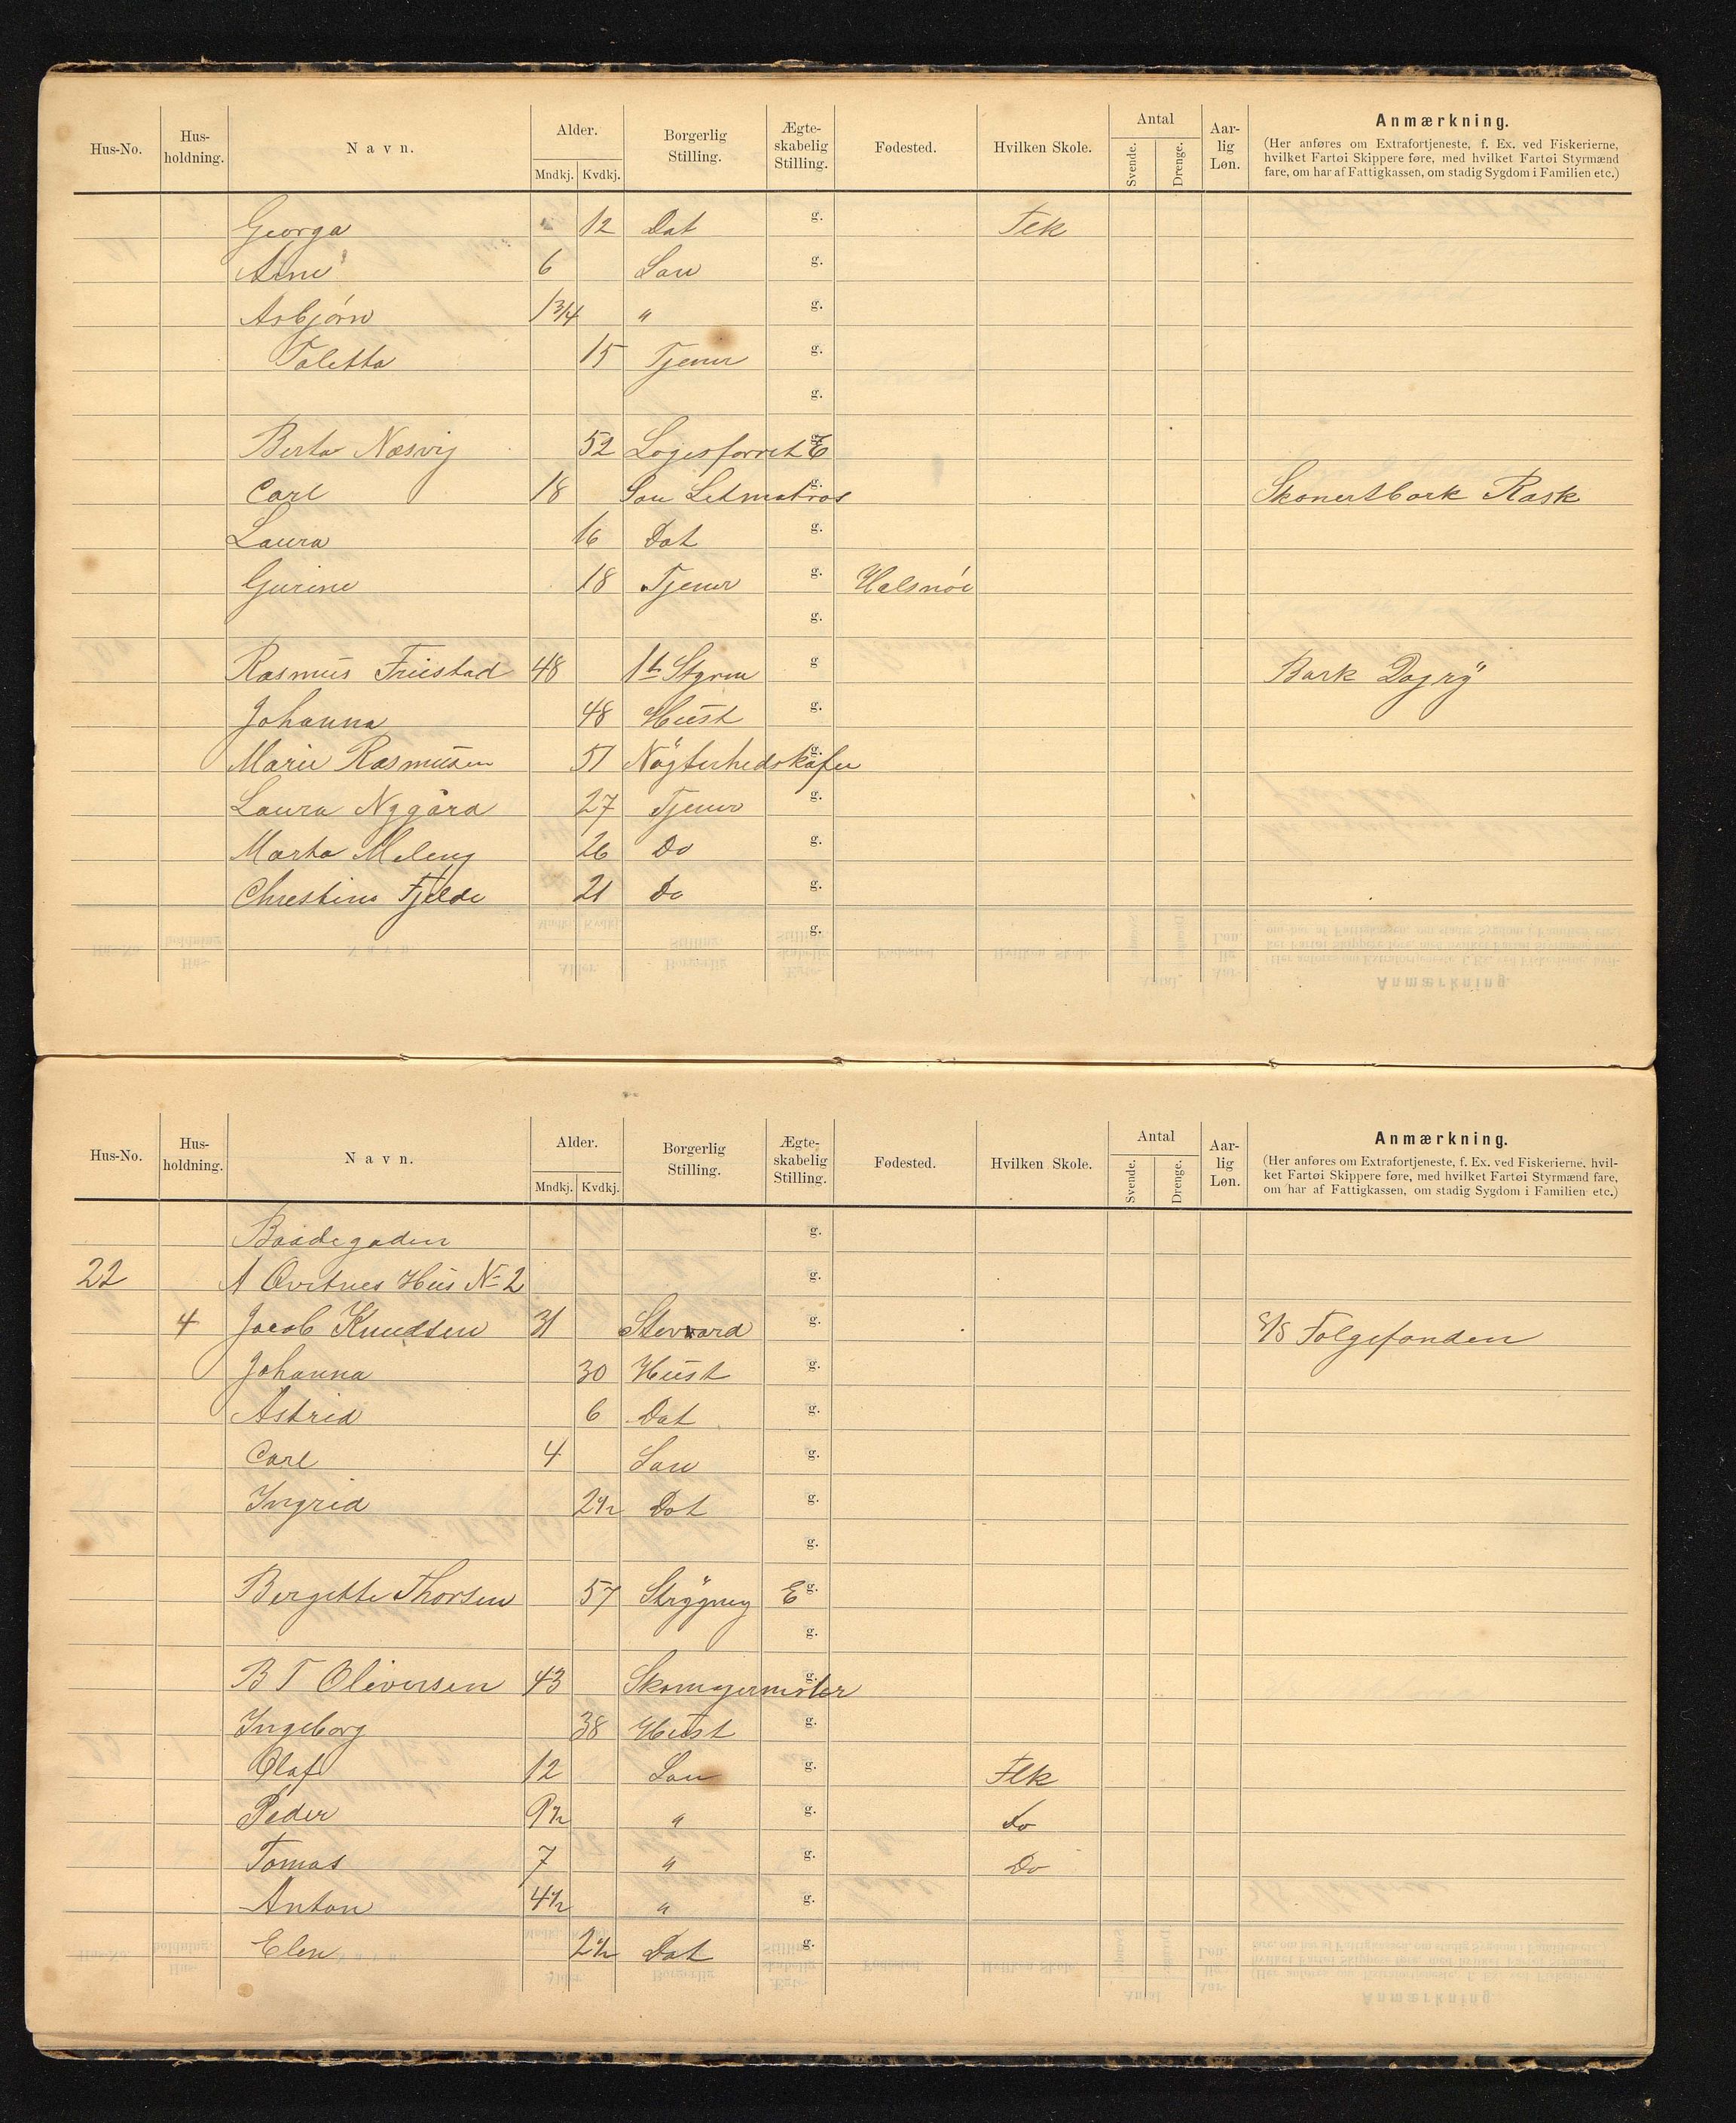 Hus-No. Hus-holdning. Navn. Alder. Mndkj. Kvdkj. Borgerlig Stilling. Ægte-skabelig Stilling. Fødested. Hvilken Skole. Antal Svende. Drenge. Aar-lig Løn. Anmærkning.
(Her anføres om Extrafortjeneste, f. Ex. ved Fiskerierne,
hvilket Fartøi Skippere føre, med hvilket Fartøi Styrmænd
fare, om har af Fattigkassen, om stadig Sygdom i Familien etc.)
Georga 12 Dat g. Flk
Arne 6 Søn g.
Asbjørn 1 3/4 " g.
Taletta 15 Tjener g.
g.
Berta Næsvig 52 Logesforret E g.
Carl 18 Søn Letmatros g. Skonertbark Rask
Laura 16 Dat g.
Gurine 18 Tjener g. Halsnöe
g.
Rasmus Friestad 48 1st Styrm g Bark Dagry
Johanna 48 Hust g.
Marie Rasmusen 51 Nögterhedskafee g.
Laura Nygård 27 Tjener g.
Marta Meling 26 Do g.
Christine Fjelde 21 Do g.
g.
Hus-No. Hus-holdning. Navn. Alder. Mndkj. Kvdkj. Borgerlig Stilling. Ægte-skabelig Stilling. Fødested. Hvilken Skole. Antal Svende. Drenge. Aar-lig Løn. Anmærkning.
(Her anføres om Extrafortjeneste, f. Ex. ved Fiskerierne, hvil-
ket Fartøi Skippere føre, med hvilket Fartøi Styrmænd fare,
om har af Fattigkassen, om stadig Sygdom i Familien etc.)
Baadegaden g.
22 A Qvitnes Hus No 2 g.
4 Jacob Knudsen 31 Steward g. S/S Folgefonden
Johanna 30 Hust g.
Astrid 6 Dat g.
Carl 4 Søn g.
Ingrid 2 1/2 Dat g.
g.
Bergitte Thorsen 57 Strygning E g.
g.
B T Oliversen 43 Skomagermster g.
Ingeborg 38 Hust g.
Olaf 12 Søn g. Flk
Peder 9 1/2 " g. Do
Tomas 7 " g. Do
Anton 4 1/2 " g.
Elen 2 1/2 Dat g.